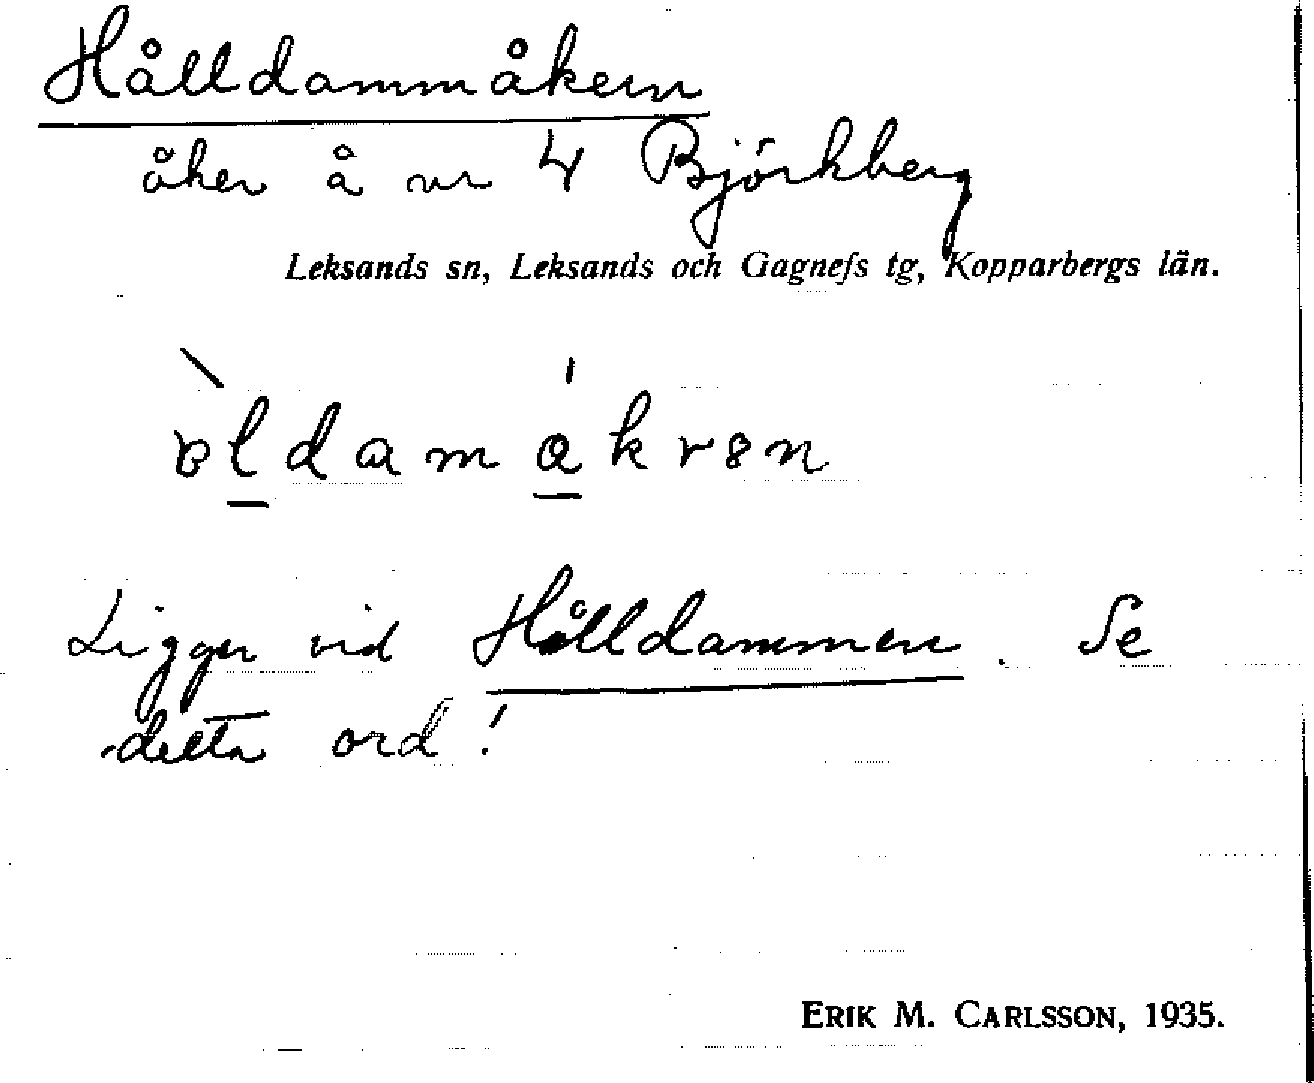 Hålldammåkern
åker å nr 4 Björkberg
Leksands sn, Leksands och Gagnefs tg, Kopparbergs län.
Ligger vid Hålldammen. Se
detta ord!
ERIK M. CARLSSON, 1935.